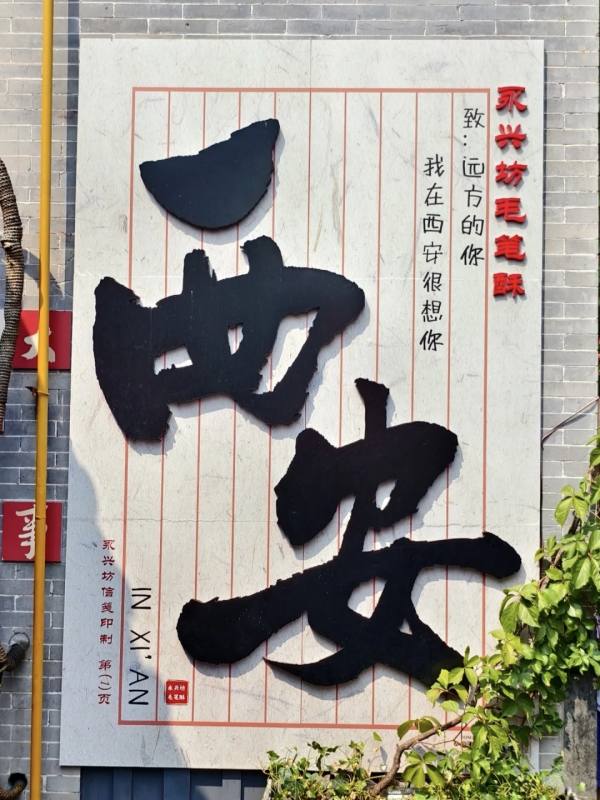 永兴坊毛笔酥
致：远方的你
我在西安很想你
西安
IN XI'AN
永兴坊信笺印制 第(2)页
永兴坊
毛笔酥